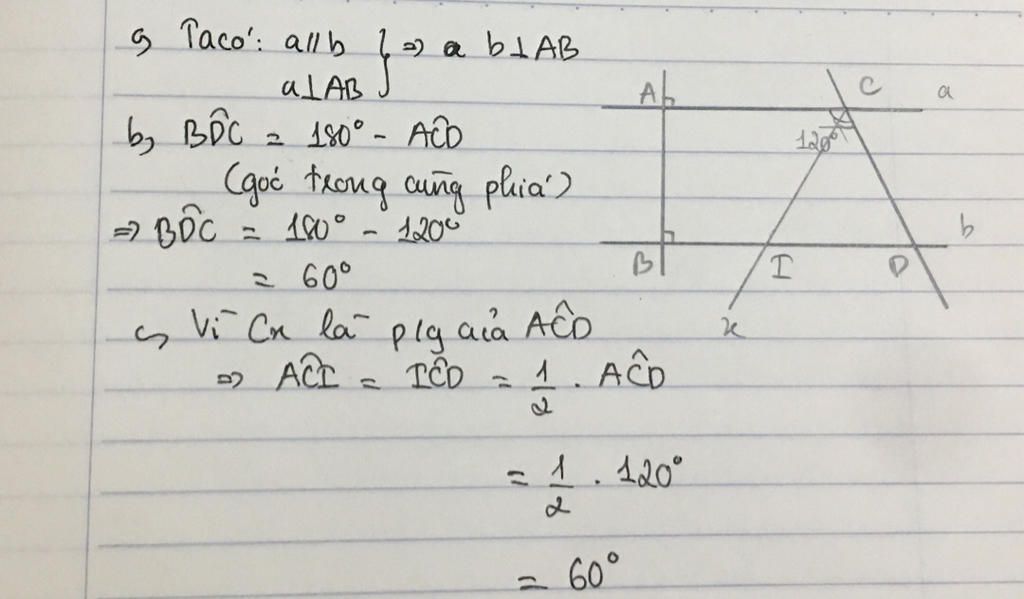 a, Ta có: a//b } => b⊥AB
a⊥AB
b, BD̂C = 180° - AĈD
(góc trong cùng phía)
=> BD̂C = 180° - 120°
= 60°
c, Vì Cx là p/g của AĈD
=> AĈI = IĈD = 1/2 . AĈD
= 1/2 . 120°
= 60°
A C a
120°
B I D b
x